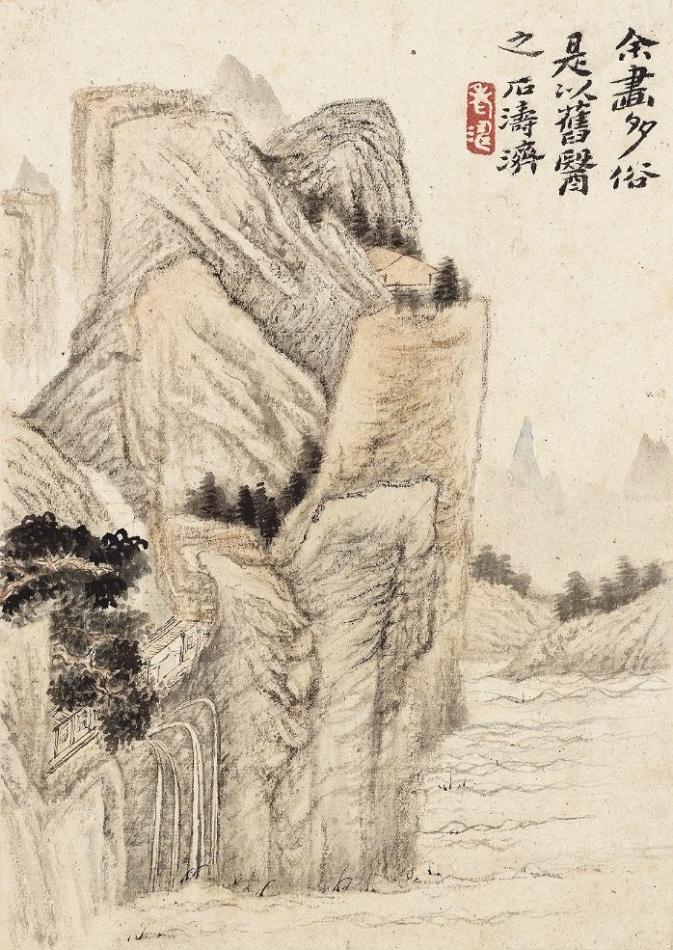 余畫多俗
是以舊醫
之石濤濟